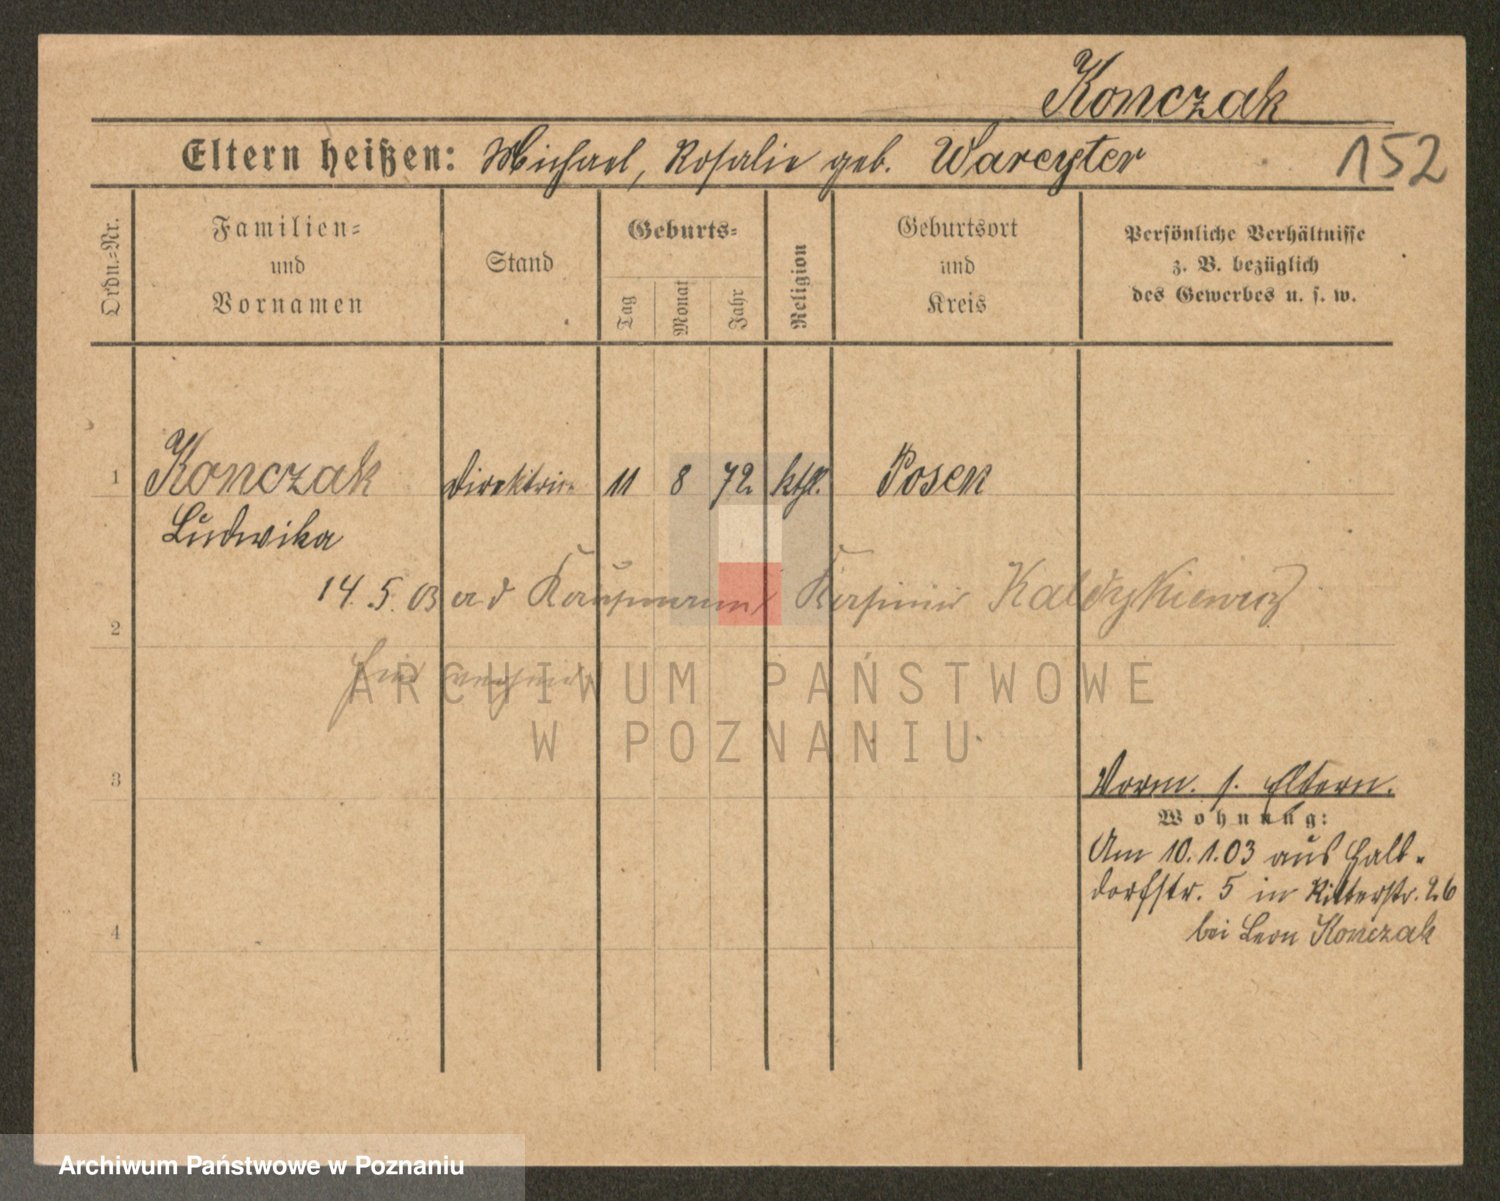 Konczak
Eltern heißen: Michael, Rosalie geb. Wareyter
152
Ordn.=Nr.
Familien=
und
Vornamen
Stand
Geburts=
Tag
Monat
Jahr
Religion
Geburtsort
und
Kreis
Persönliche Verhältnisse
z. B. bezüglich
des Gewerbes u. s. w.
1 Konczak Direktri. 11 8 72 kthl. Posen
Ludwika
14. 5. 03 Kaufmann Kasimir
2
ARCHIWUM PAŃSTWOWE
W POZNANIU
3
Vorm. s. Eltern.
Wohnung:
Am 10.1.03 aus Halb-
dorfstr. 5 in Ritterstr. 26
bei Leon Konczak
4
Archiwum Państwowe w Poznaniu